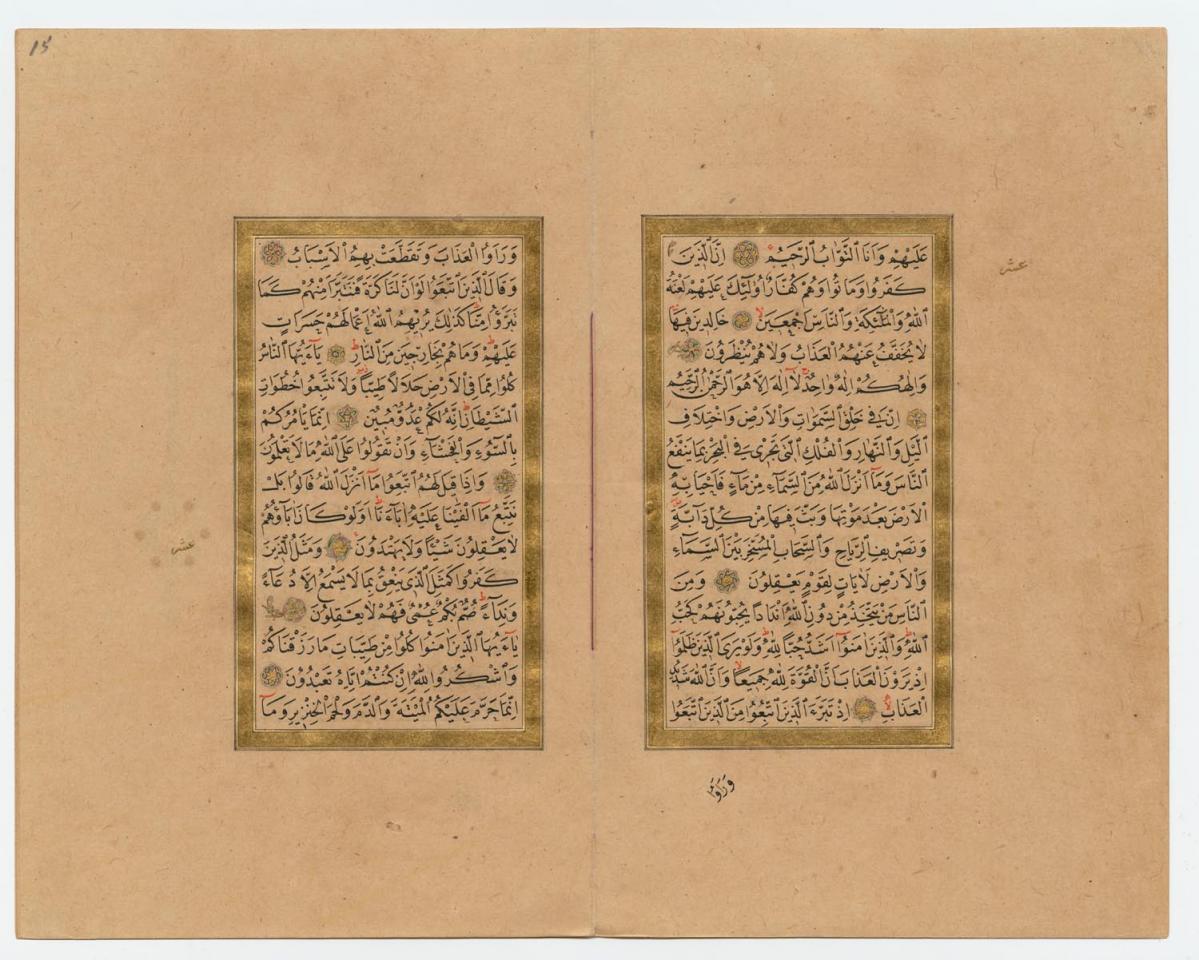 عَلَيْهِمْ وَاَنَا التَّوَّابُ الرَّحِيمُ اِنَّ الَّذِينَ
كَفَرُوا وَمَاتُوا وَهُمْ كُفَّارٌ اُولٰٓئِكَ عَلَيْهِمْ لَعْنَةُ
اللّٰهِ وَالْمَلٰٓئِكَةِ وَالنَّاسِ اَجْمَعِينَ خَالِدِينَ فِيهَا
لَا يُخَفَّفُ عَنْهُمُ الْعَذَابُ وَلَا هُمْ يُنْظَرُونَ
وَاِلٰهُكُمْ اِلٰهٌ وَاحِدٌ لَٓا اِلٰهَ اِلَّا هُوَ الرَّحْمٰنُ الرَّحِيمُ
اِنَّ فِي خَلْقِ السَّمٰوَاتِ وَالْاَرْضِ وَاخْتِلَافِ
الَّيْلِ وَالنَّهَارِ وَالْفُلْكِ الَّتِي تَجْرِي فِي الْبَحْرِ بِمَا يَنْفَعُ
النَّاسَ وَمَٓا اَنْزَلَ اللّٰهُ مِنَ السَّمَٓاءِ مِنْ مَٓاءٍ فَاَحْيَا بِهِ
الْاَرْضَ بَعْدَ مَوْتِهَا وَبَثَّ فِيهَا مِنْ كُلِّ دَٓابَّةٍ
وَتَصْرِيفِ الرِّيَاحِ وَالسَّحَابِ الْمُسَخَّرِ بَيْنَ السَّمَٓاءِ
وَالْاَرْضِ لَاٰيَاتٍ لِقَوْمٍ يَعْقِلُونَ وَمِنَ
النَّاسِ مَنْ يَتَّخِذُ مِنْ دُونِ اللّٰهِ اَنْدَادًا يُحِبُّونَهُمْ كَحُبِّ
اللّٰهِ وَالَّذِينَ اٰمَنُٓوا اَشَدُّ حُبًّا لِلّٰهِ وَلَوْ يَرَى الَّذِينَ ظَلَمُٓوا
اِذْ يَرَوْنَ الْعَذَابَ اَنَّ الْقُوَّةَ لِلّٰهِ جَمِيعًا وَاَنَّ اللّٰهَ شَدِيدُ
الْعَذَابِ اِذْ تَبَرَّاَ الَّذِينَ اتُّبِعُوا مِنَ الَّذِينَ اتَّبَعُوا
وَرَاَوُا
عشر
15
وَرَاَوُا الْعَذَابَ وَتَقَطَّعَتْ بِهِمُ الْاَسْبَابُ
وَقَالَ الَّذِينَ اتَّبَعُوا لَوْ اَنَّ لَنَا كَرَّةً فَنَتَبَرَّاَ مِنْهُمْ كَمَا
تَبَرَّؤُا مِنَّا كَذٰلِكَ يُرِيهِمُ اللّٰهُ اَعْمَالَهُمْ حَسَرَاتٍ
عَلَيْهِمْ وَمَا هُمْ بِخَارِجِينَ مِنَ النَّارِ يَٓا اَيُّهَا النَّاسُ
كُلُوا مِمَّا فِي الْاَرْضِ حَلَالًا طَيِّبًا وَلَا تَتَّبِعُوا خُطُوَاتِ
الشَّيْطَانِ اِنَّهُ لَكُمْ عَدُوٌّ مُبِينٌ اِنَّمَا يَاْمُرُكُمْ
بِالسُّٓوءِ وَالْفَحْشَٓاءِ وَاَنْ تَقُولُوا عَلَى اللّٰهِ مَا لَا تَعْلَمُونَ
وَاِذَا قِيلَ لَهُمُ اتَّبِعُوا مَٓا اَنْزَلَ اللّٰهُ قَالُوا بَلْ
نَتَّبِعُ مَٓا اَلْفَيْنَا عَلَيْهِ اٰبَٓاءَنَا اَوَلَوْ كَانَ اٰبَٓاؤُهُمْ
لَا يَعْقِلُونَ شَيْئًا وَلَا يَهْتَدُونَ وَمَثَلُ الَّذِينَ
كَفَرُوا كَمَثَلِ الَّذِي يَنْعِقُ بِمَا لَا يَسْمَعُ اِلَّا دُعَٓاءً
وَنِدَٓاءً صُمٌّ بُكْمٌ عُمْيٌ فَهُمْ لَا يَعْقِلُونَ
يَٓا اَيُّهَا الَّذِينَ اٰمَنُوا كُلُوا مِنْ طَيِّبَاتِ مَا رَزَقْنَاكُمْ
وَاشْكُرُوا لِلّٰهِ اِنْ كُنْتُمْ اِيَّاهُ تَعْبُدُونَ
اِنَّمَا حَرَّمَ عَلَيْكُمُ الْمَيْتَةَ وَالدَّمَ وَلَحْمَ الْخِنْزِيرِ وَمَٓا
عشر